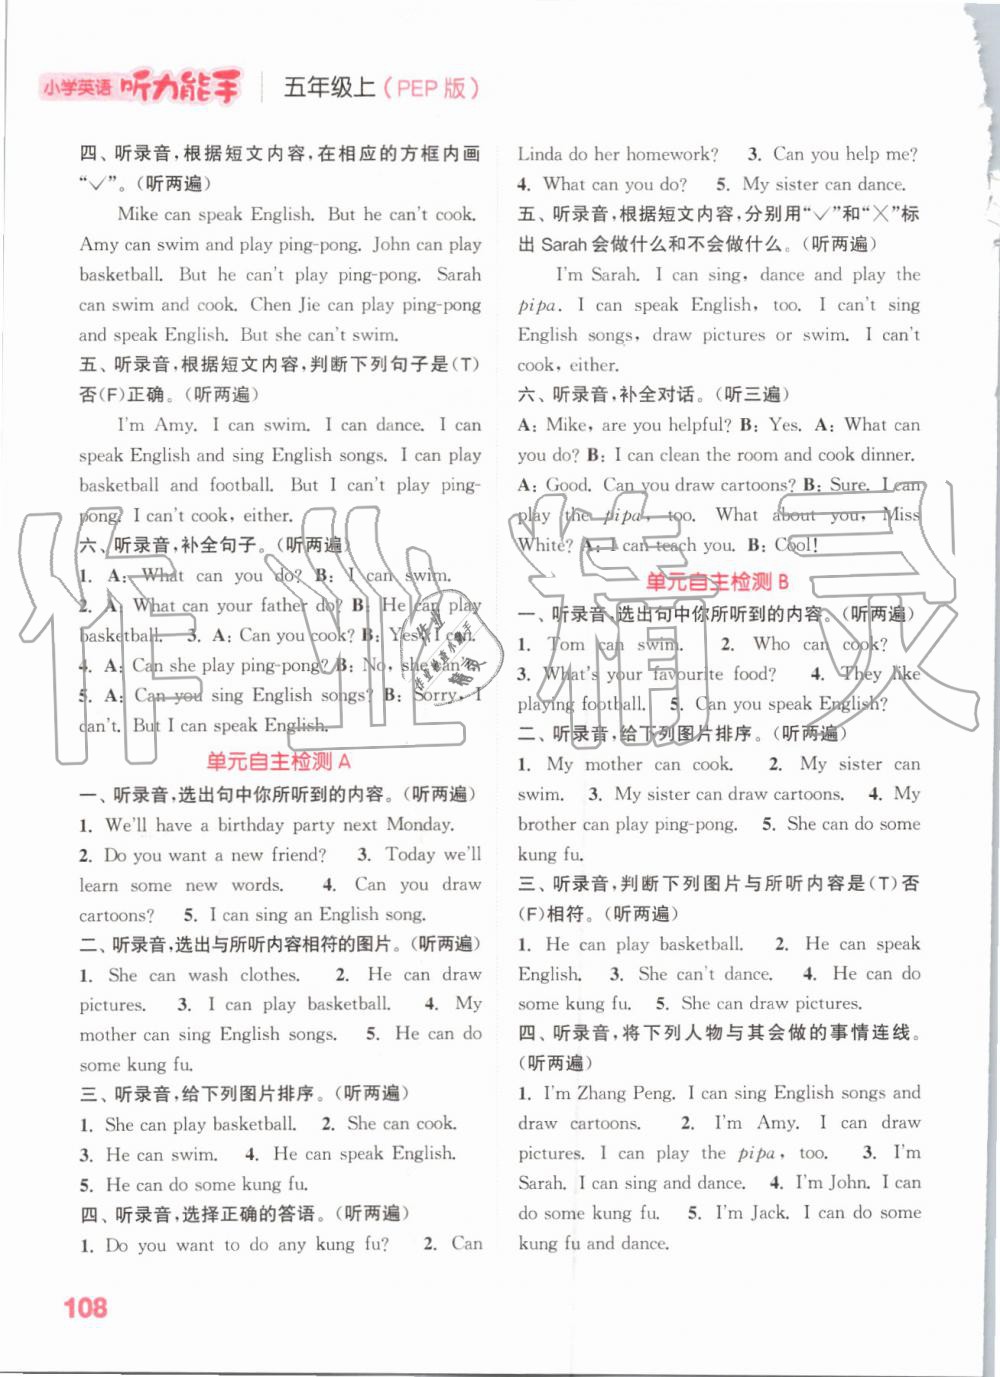 小学英语 听力能手 五年级上(PEP 版)
四、听录音,根据短文内容,在相应的方框内画
“✓”。(听两遍)
Mike can speak English. But he can't cook.
Amy can swim and play ping-pong. John can play
basketball. But he can't play ping-pong. Sarah
can swim and cook. Chen Jie can play ping-pong
and speak English. But she can't swim.
五、听录音,根据短文内容,判断下列句子是(T)
否(F)正确。(听两遍)
I'm Amy. I can swim. I can dance. I can
speak English and sing English songs. I can play
basketball and football. But I can't play ping-
pong. I can't cook, either.
六、听录音,补全句子。(听两遍)
1. A: What can you do? B: I can swim.
2. A: What can your father do? B: He can play
basketball. 3. A: Can you cook? B: Yes, I can.
4. A: Can she play ping-pong? B: No, she can't.
5. A: Can you sing English songs? B: Sorry, I
can't. But I can speak English.
单元自主检测 A
一、听录音,选出句中你所听到的内容。(听两遍)
1. We'll have a birthday party next Monday.
2. Do you want a new friend? 3. Today we'll
learn some new words. 4. Can you draw
cartoons? 5. I can sing an English song.
二、听录音,选出与所听内容相符的图片。(听两遍)
1. She can wash clothes. 2. He can draw
pictures. 3. I can play basketball. 4. My
mother can sing English songs. 5. He can do
some kung fu.
三、听录音,给下列图片排序。(听两遍)
1. She can play basketball. 2. She can cook.
3. He can swim. 4. He can speak English.
5. He can do some kung fu.
四、听录音,选择正确的答语。(听两遍)
1. Do you want to do any kung fu? 2. Can
Linda do her homework? 3. Can you help me?
4. What can you do? 5. My sister can dance.
五、听录音,根据短文内容,分别用“✓”和“×”标
出 Sarah 会做什么和不会做什么。(听两遍)
I'm Sarah. I can sing, dance and play the
pipa. I can speak English, too. I can't sing
English songs, draw pictures or swim. I can't
cook, either.
六、听录音,补全对话。(听三遍)
A: Mike, are you helpful? B: Yes. A: What can
you do? B: I can clean the room and cook dinner.
A: Good. Can you draw cartoons? B: Sure. I can
play the pipa, too. What about you, Miss
White? A: I can teach you. B: Cool!
单元自主检测 B
一、听录音,选出句中你所听到的内容。(听两遍)
1. Tom can swim. 2. Who can cook?
3. What's your favourite food? 4. They like
playing football. 5. Can you speak English?
二、听录音,给下列图片排序。(听两遍)
1. My mother can cook. 2. My sister can
swim. 3. My sister can draw cartoons. 4. My
brother can play ping-pong. 5. She can do some
kung fu.
三、听录音,判断下列图片与所听内容是(T)否
(F)相符。(听两遍)
1. He can play basketball. 2. He can speak
English. 3. She can't dance. 4. He can do
some kung fu. 5. She can draw pictures.
四、听录音,将下列人物与其会做的事情连线。
(听两遍)
1. I'm Zhang Peng. I can sing English songs and
draw cartoons. 2. I'm Amy. I can draw
pictures. I can play the pipa, too. 3. I'm
Sarah. I can sing and dance. 4. I'm John. I can
do some kung fu. 5. I'm Jack. I can do some
kung fu and dance.
108
作业精灵